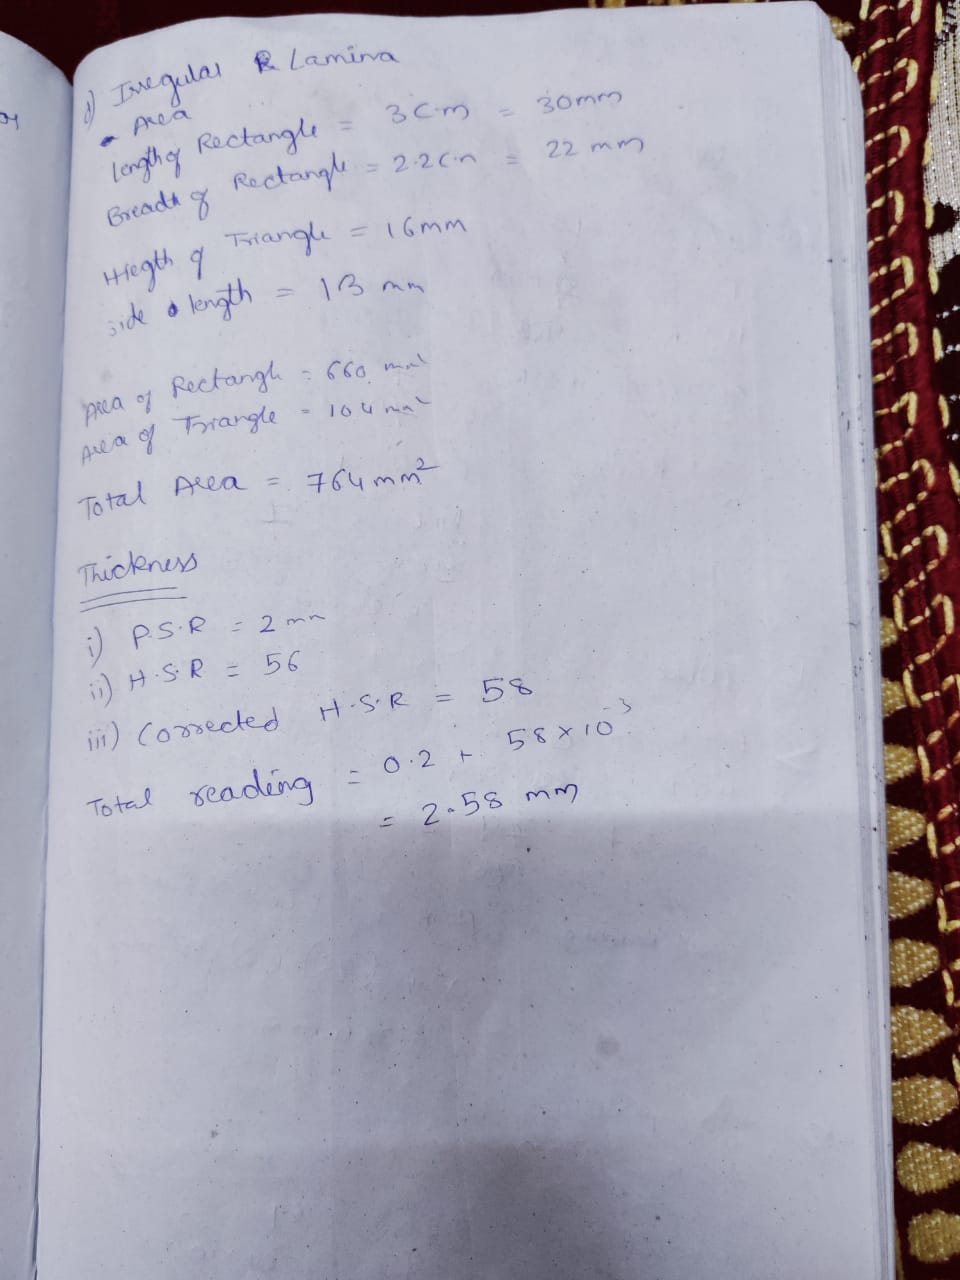 d) Irregular Lamina
Area
length of Rectangle = 3 cm = 30mm
Breadth of Rectangle = 2.2 cm = 22 mm
Hiegth of Triangle = 16mm
side length = 13 mm
Area of Rectangle = 660 mm²
Area of Triangle = 104 mm²
Total Area = 764 mm²
Thickness
i) P.S.R = 2 mm
ii) H.S.R = 56
iii) Corrected H.S.R = 58
Total reading = 0.2 + 58 × 10⁻³
= 2.58 mm